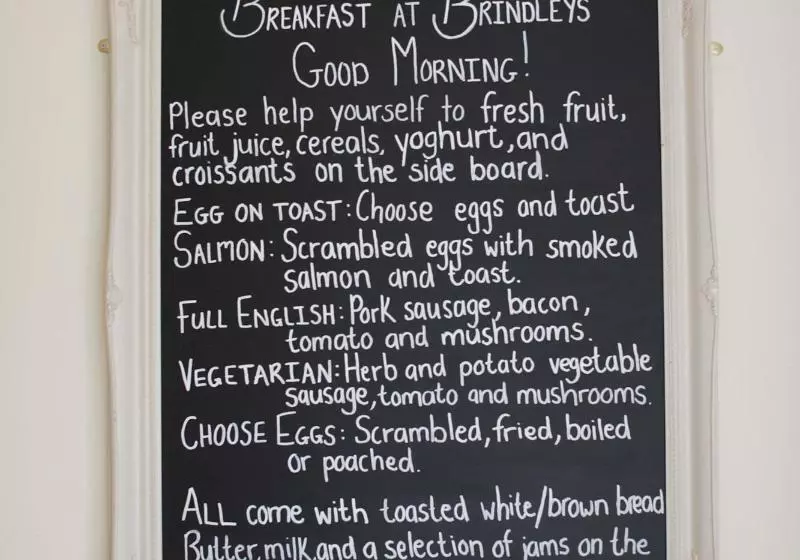 BREAKFAST AT BRINDLEYS
GOOD MORNING!
Please help yourself to fresh fruit,
fruit juice, cereals, yoghurt, and
croissants on the side board.
EGG ON TOAST: Choose eggs and toast
SALMON: Scrambled eggs with smoked
salmon and toast.
FULL ENGLISH: Pork sausage, bacon,
tomato and mushrooms.
VEGETARIAN: Herb and potato vegetable
sausage, tomato and mushrooms.
CHOOSE EGGS: Scrambled, fried, boiled
or poached.
ALL come with toasted white/brown bread
Butter, milk, and a selection of jams on the